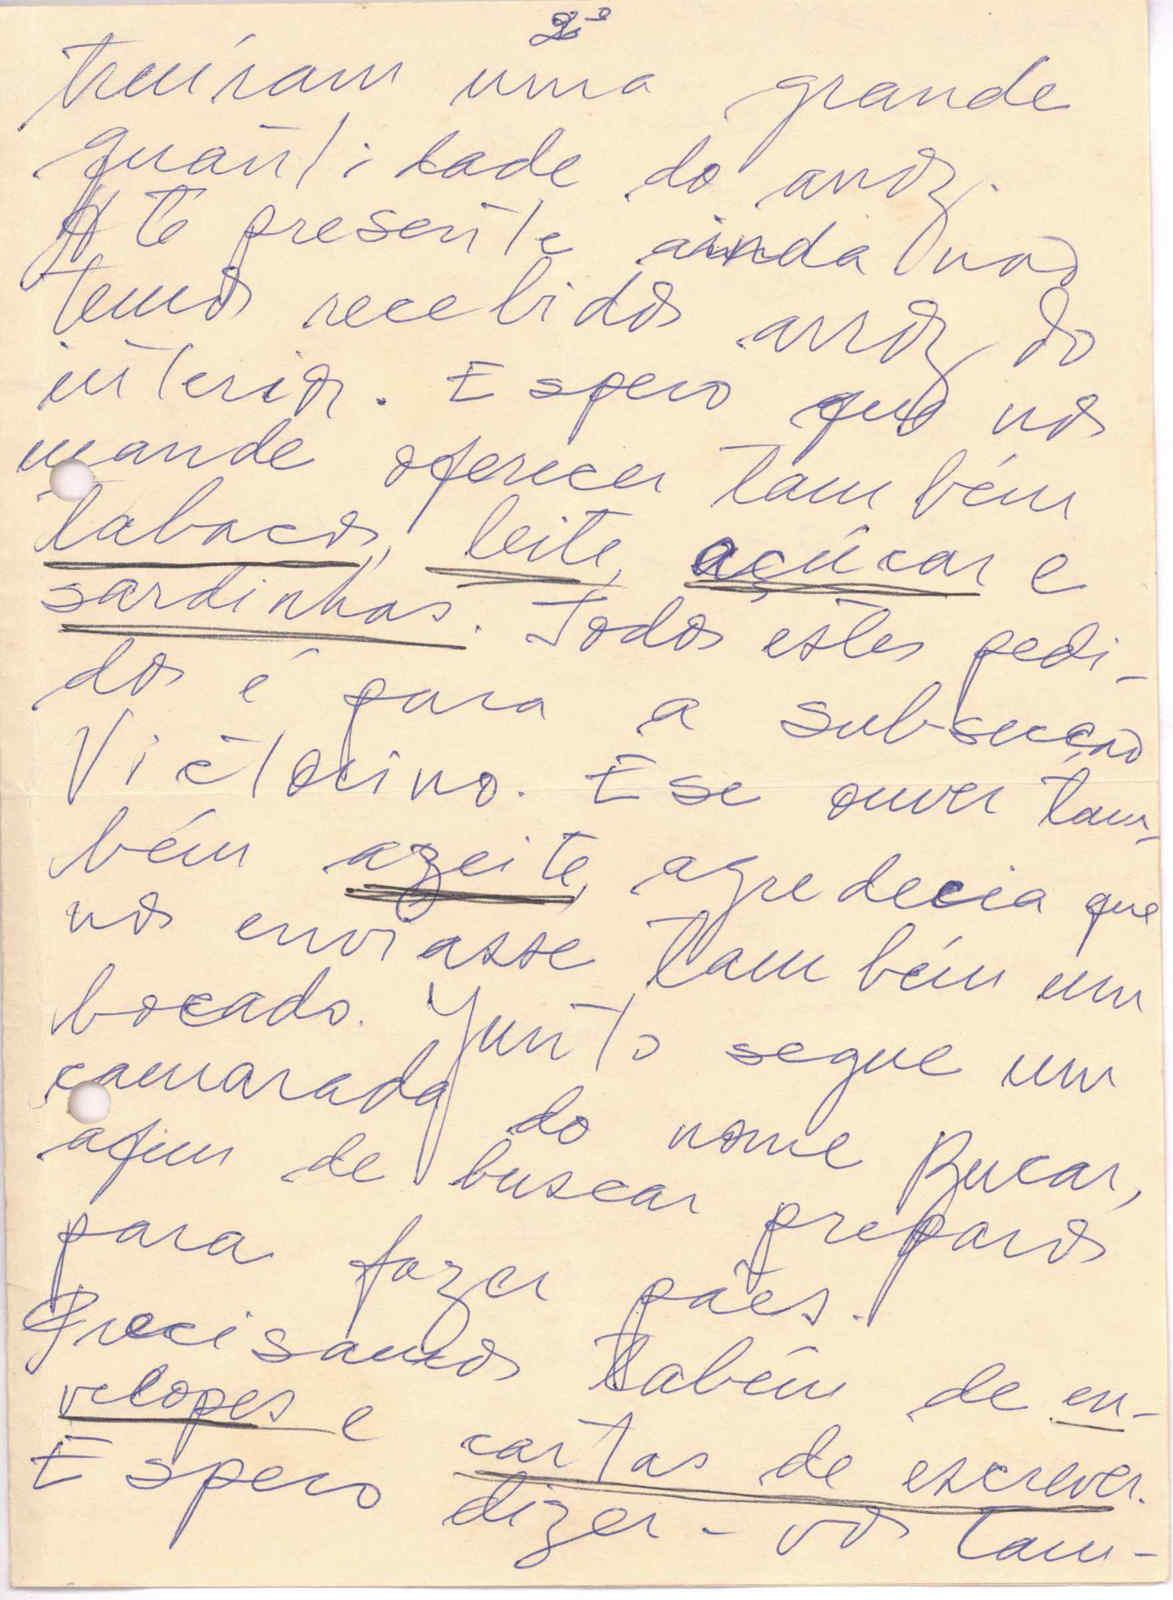 2º
truíram uma grande
quantidade do arroz.
Até presente ainda não
temos recebidos arroz do
interior. Espero que nos
mande oferecer também
tabacos, leite, açúcar e
sardinhas. Todos estes pedi-
dos é para a sub-secção
Victorino. E se ouver tam-
bém azeite, agredecia que
nos enviasse também um
bocado. Junto segue um
camarada do nome Bucar,
afim de buscar preparos
para fazer pães.
Precisamos tabém de en-
velopes e cartas de escrever.
Espero dizer-vos tam-